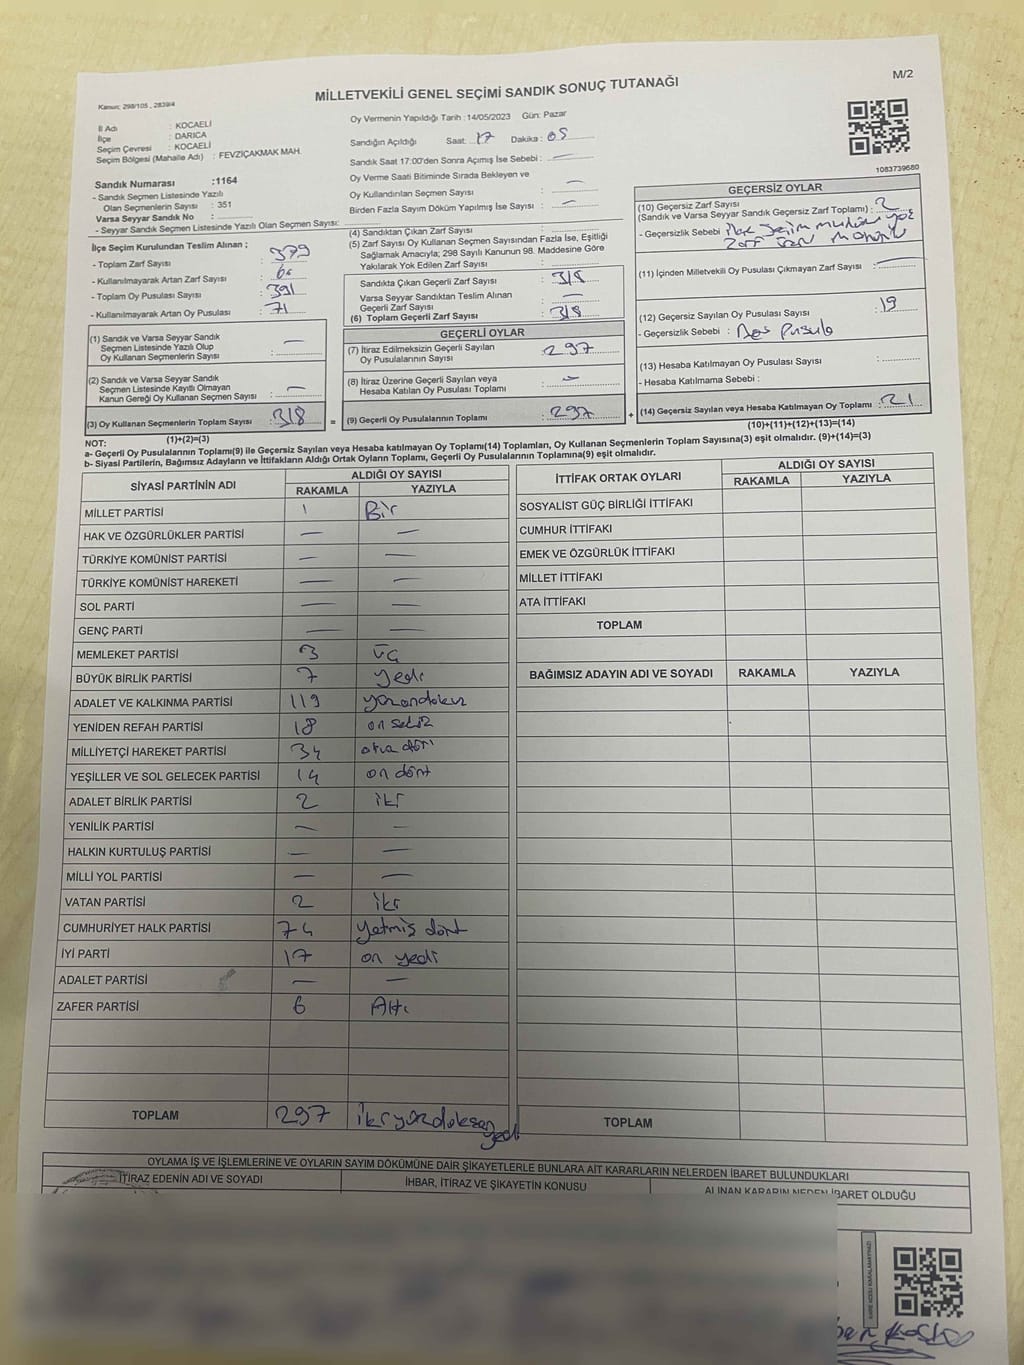 M/2
Kanun; 298/105 , 2839/4
MİLLETVEKİLİ GENEL SEÇİMİ SANDIK SONUÇ TUTANAĞI
İl Adı : KOCAELİ
İlçe : DARICA
Seçim Çevresi : KOCAELİ
Seçim Bölgesi (Mahalle Adı) : FEVZİÇAKMAK MAH.
Sandık Numarası :1164
- Sandık Seçmen Listesinde Yazılı
Olan Seçmenlerin Sayısı : 351
Varsa Seyyar Sandık No :
- Seyyar Sandık Seçmen Listesinde Yazılı Olan Seçmen Sayısı:
İlçe Seçim Kurulundan Teslim Alınan ;
- Toplam Zarf Sayısı : 379
- Kullanılmayarak Artan Zarf Sayısı :
- Toplam Oy Pusulası Sayısı : 391
- Kullanılmayarak Artan Oy Pusulası : 71
(1) Sandık ve Varsa Seyyar Sandık
Seçmen Listesinde Yazılı Olup
Oy Kullanan Seçmenlerin Sayısı : —
(2) Sandık ve Varsa Seyyar Sandık
Seçmen Listesinde Kayıtlı Olmayan
Kanun Gereği Oy Kullanan Seçmen Sayısı : —
(3) Oy Kullanan Seçmenlerin Toplam Sayısı : 318
(1)+(2)=(3)
Oy Vermenin Yapıldığı Tarih :14/05/2023 Gün: Pazar
Sandığın Açıldığı Saat: 17 Dakika : 05
Sandık Saat 17:00'den Sonra Açımış İse Sebebi : —
Oy Verme Saati Bitiminde Sırada Bekleyen ve
Oy Kullandırılan Seçmen Sayısı : —
Birden Fazla Sayım Döküm Yapılmış İse Sayısı : —
(4) Sandıktan Çıkan Zarf Sayısı :
(5) Zarf Sayısı Oy Kullanan Seçmen Sayısından Fazla İse, Eşitliği
Sağlamak Amacıyla; 298 Sayılı Kanunun 98. Maddesine Göre
Yakılarak Yok Edilen Zarf Sayısı :
Sandıkta Çıkan Geçerli Zarf Sayısı : 318
Varsa Seyyar Sandıktan Teslim Alınan
Geçerli Zarf Sayısı : —
(6) Toplam Geçerli Zarf Sayısı : 318
GEÇERLİ OYLAR
(7) İtiraz Edilmeksizin Geçerli Sayılan
Oy Pusulalarının Sayısı : 297
(8) İtiraz Üzerine Geçerli Sayılan veya
Hesaba Katılan Oy Pusulaları Toplamı : —
= (9) Geçerli Oy Pusulalarının Toplamı : 297 +
1083739680
GEÇERSİZ OYLAR
(10) Geçersiz Zarf Sayısı
(Sandık ve Varsa Seyyar Sandık Geçersiz Zarf Toplamı) : 2
- Geçersizlik Sebebi : İlçe Seçim mührü yok
(11) İçinden Milletvekili Oy Pusulası Çıkmayan Zarf Sayısı : —
(12) Geçersiz Sayılan Oy Pusulası Sayısı : 19
- Geçersizlik Sebebi : Pusula
(13) Hesaba Katılmayan Oy Pusulası Sayısı :
- Hesaba Katılmama Sebebi :
(14) Geçersiz Sayılan veya Hesaba Katılmayan Oy Toplamı : 21
(10)+(11)+(12)+(13)=(14)
NOT:
a- Geçerli Oy Pusulalarının Toplamı(9) ile Geçersiz Sayılan veya Hesaba katılmayan Oy Toplamı(14) Toplamları, Oy Kullanan Seçmenlerin Toplam Sayısına(3) eşit olmalıdır. (9)+(14)=(3)
b- Siyasi Partilerin, Bağımsız Adayların ve İttifakların Aldığı Ortak Oyların Toplamı, Geçerli Oy Pusulalarının Toplamına(9) eşit olmalıdır.
SİYASİ PARTİNİN ADI ALDIĞI OY SAYISI
RAKAMLA YAZIYLA
MİLLET PARTİSİ 1 Bir
HAK VE ÖZGÜRLÜKLER PARTİSİ — —
TÜRKİYE KOMÜNİST PARTİSİ — —
TÜRKİYE KOMÜNİST HAREKETİ — —
SOL PARTİ — —
GENÇ PARTİ — —
MEMLEKET PARTİSİ 3 üç
BÜYÜK BİRLİK PARTİSİ 7 yedi
ADALET VE KALKINMA PARTİSİ 119 yüzondokuz
YENİDEN REFAH PARTİSİ 18 on sekiz
MİLLİYETÇİ HAREKET PARTİSİ 34 otuz dört
YEŞİLLER VE SOL GELECEK PARTİSİ 14 on dört
ADALET BİRLİK PARTİSİ 2 iki
YENİLİK PARTİSİ — —
HALKIN KURTULUŞ PARTİSİ — —
MİLLİ YOL PARTİSİ — —
VATAN PARTİSİ 2 iki
CUMHURİYET HALK PARTİSİ 74 yetmiş dört
İYİ PARTİ 17 on yedi
ADALET PARTİSİ — —
ZAFER PARTİSİ 6 Altı
TOPLAM 297 ikiyüzdoksan
yedi
İTTİFAK ORTAK OYLARI ALDIĞI OY SAYISI
RAKAMLA YAZIYLA
SOSYALİST GÜÇ BİRLİĞİ İTTİFAKI
CUMHUR İTTİFAKI
EMEK VE ÖZGÜRLÜK İTTİFAKI
MİLLET İTTİFAKI
ATA İTTİFAKI
TOPLAM
BAĞIMSIZ ADAYIN ADI VE SOYADI RAKAMLA YAZIYLA
TOPLAM
OYLAMA İŞ VE İŞLEMLERİNE VE OYLARIN SAYIM DÖKÜMÜNE DAİR ŞİKAYETLERLE BUNLARA AİT KARARLARIN NELERDEN İBARET BULUNDUKLARI
İTİRAZ EDENİN ADI VE SOYADI İHBAR, İTİRAZ VE ŞİKAYETİN KONUSU ALINAN KARARIN NEDEN İBARET OLDUĞU